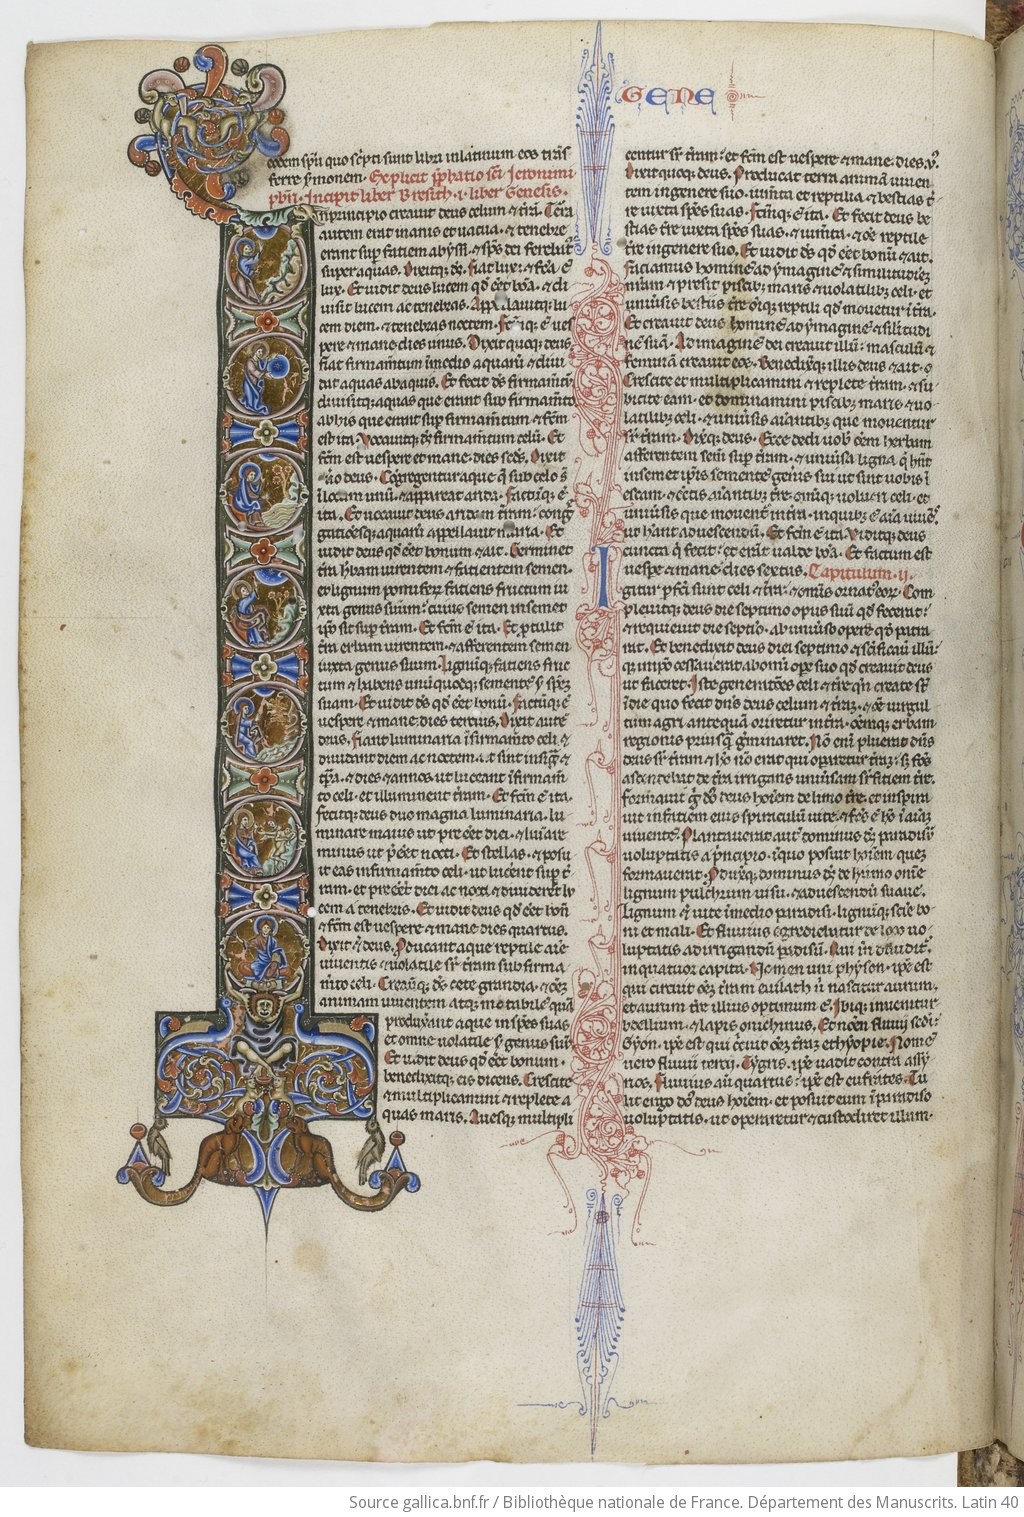 GENE
eodem spu quo scpti sunt libri in latinum eos trans
ferre sermonem. Explicit phatio sci Jeronimi
pbri. Incipit liber Bresith. i. liber Genesis.
In principio creavit deus celum & tram. Terra
autem erat inanis et vacua. & tenebre
erant sup faciem abyssi. & sps dei ferebat
super aquas. Dixitq; ds. fiat lux. & fca e
lux. Et vidit deus lucem qd eet bona. & di
visit lucem ac tenebras. Appellavitq; lu
cem diem. & tenebras noctem. Fcmq; e ves
pere & mane. dies unus. Dixit quoq; deus.
fiat firmamtum in medio aquarum & divi
dat aquas ab aquis. Et fecit ds firmamtu.
divisitq; aquas que erant sub firmamto
ab his que erant sup firmamtum. & fcm
est ita. Vocavitq; ds firmamtum celu. Et
fcm est vespere et mane. dies scds. Dixit
vero deus. Congregentur aque q sub celo st
in locum unu. & appareat arida. Factuq; e
ita. Et vocavit deus aridam tram. cong
gationesq; aquaru appellavit maria. Et
vidit deus qd eet bonum & ait. Germinet
tra hbam virentem & facientem semen.
et lignum pomiferu faciens fructum iu
xta genus suum. cuius semen in semet
ipso sit sup tram. Et fcm e ita. Et ptulit
tra erbam virentem. & afferentem semen
iuxta genus suum. Lignuq; faciens fruc
tum & habens unuquodq; semente s spez
suam. Et vidit ds qd eet bonu. Factuq; e
vespere & mane. dies tercius. Dixit aute
deus. Fiant luminaria in firmamto celi. &
dividant diem ac noctem. & sint in signa &
tpra. & dies & annos. ut luceant in firmam
to celi. et illuminent tram. Et fcm e ita.
fecitq; deus duo magna luminaria. lu
minare maius ut pre eet diei. & luminare
minus ut p eet nocti. Et stellas. & posu
it eas in firmamto celi. ut lucent sup t
ram. et pre eet diei ac nocti. & divideret lu
cem a tenebris. Et vidit deus qd eet bon
& fcm est vespere & mane dies quartus.
Dixit & deus. Producant aque reptile aie
viventis & volatile sr tram sub firma
mto celi. Creavitq; ds cete grandia. & oem
animam viventem atq; motabile qua
produxant aque in spes suas
et omne volatile s genus suu
Et vidit deus qd eet bonum.
benedixitq; eis dicens. Crescite
& multiplicamini & replete a
quas maris. Avesq; multipli
centur sr tram. et fcm est vespere & mane. dies. v.
Dixit quoq; deus. Producat terra animam viven
tem in genere suo. iumta et reptilia. & bestias t
re iuxta spes suas. Fcmq; e ita. Et fecit deus be
stias tre iuxta spes suas. & iumta. & oe reptile
tre in genere suo. Et vidit ds qd eet bonu. & ait.
Faciamus homine ad ymagine & similitudinez
nram & presit piscib; maris & volatilib; celi. et
universis bestiis tre oiq; reptili qd movetur in tra.
Et creavit deus homine ad ymagine & similitudi
ne sua. Ad imagine dei creavit illu. masculu &
femina creavit eos. Benedixitq; illis deus & ait.
Crescite et multiplicamini & replete tram. & su
bicite eam. et dominamini piscib; maris & vo
latilib; celi. & universis aiantib; que moventur
sr tram. Dixitq; deus. Ecce dedi vob oem herbam
afferentem sem sup tram. & universa ligna q hnt
in semet ipsis semente genis sui ut sint vobis in
escam. & cctis aiantib; tre. omiq; volucri celi. et
universis que movent in tra. in quib; e aia vives.
ut hant ad vescendu. Et fcm e ita. Viditq; deus
cuncta q fecit. et erant valde bona. Et factum est
vespe & mane. dies sextus. Capitulum. ii.
Igitur pfci sunt celi & tra. & omis ornat eoz. Com
plevitq; deus die septimo opus suu qd fecerat.
& requievit die septio. ab universo opere qd patra
rat. Et benedixit deus diei septimo & scificavit illu.
q in ipo cessaverat ab omni ope suo qd creavit deus
ut faceret. Iste generatoes celi & tre qn create st
in die quo fecit dns deus celum & tram. & oe virgul
tum agri antequa oriretur in tra. oemq; erbam
regionis priusq germinaret. No eni pluerat dns
deus sr tram. & ho no erat qui operaretur tram. s fos
ascendebat de tra irrigans universam srficiem tre.
Formavit g ds deus hoiem de limo tre. et inspira
vit in faciem eius spiraculu vite. & fcs e ho in aiaz
vivente. Plantaverat aut dominus ds paradisu
voluptatis a principio. in quo posuit hoiem quez
formaverat. Produxitq; dominus ds de humo omne
lignum pulchrum visu. & ad vescendu suave.
lignum & vite in medio paradisi. lignuq; scie bo
ni et mali. Et fluvius egrediebatur de loco vo
luptatis ad irrigandu paradisu. Qui in dividit
in quatuor capita. Nomen uni physon. ipse est
qui circuit oem tram evilath ubi nascitur aurum.
et aurum tre illius optimum e. Ibiq; invenitur
bdellium. & lapis onichinus. Et nomen fluvii secdi.
Gyon. ipse est qui circuit oem tram ethyopie. Nome
vero fluvii tercii. Tygris. ipse vadit contra assy
rios. Fluvius aut quartus. ipse est eufrates. Tu
lit ergo dns deus hoiem. et posuit eum in paradiso
voluptatis. ut operaretur & custodiret illum.
Source gallica.bnf.fr / Bibliothèque nationale de France. Département des Manuscrits. Latin 40